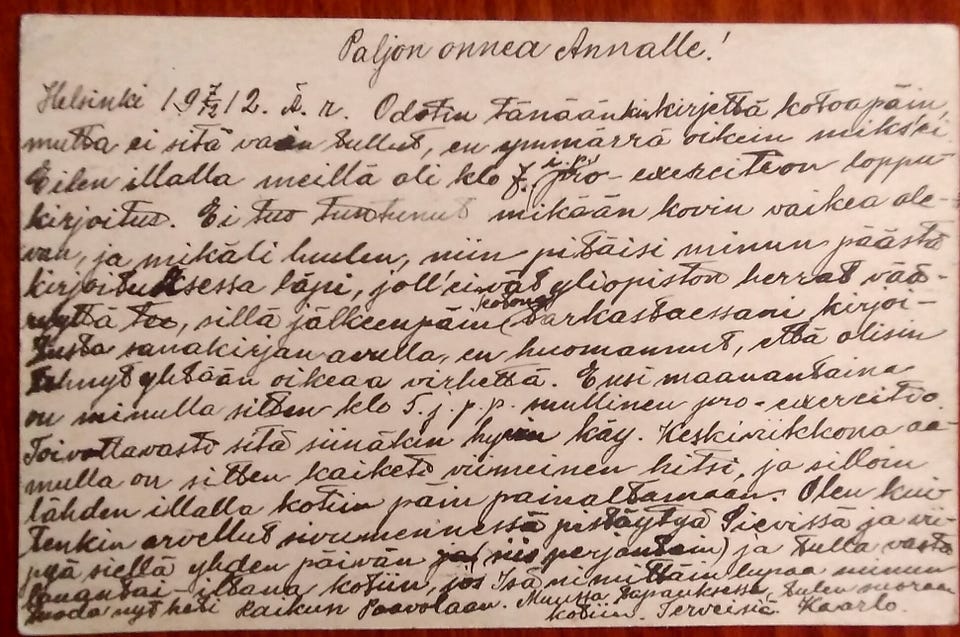 Paljon onnea Annalle!
Helsinki 19 7/12 12. Ä. r. Odotin tänäänkin kirjettä kotoapäin,
mutta ei sitä vain tullut, en ymmärrä oikein miks'ei.
Eilen illalla meillä oli klo 7 i. pro-exercition loppu-
kirjoitus. Ei tuo tuntunut mikään kovin vaikea ole-
van, ja mikäli luulen, niin pitäisi minun päästä
kirjoituksessa läpi, joll'eivät yliopiston herrat vää-
ryyttä tee, sillä jälkeenpäin (kotona) tarkastaessani kirjoi-
tusta sanakirjan avulla, en huomannut, että olisin
tehnyt yhtään oikeaa virhettä. Ensi maanantaina
on minulla sitten klo 5 j. p. p. suullinen pro-exercitio.
Toivottavasti sitä siinäkin hyvin käy. Keskiviikkona aa-
mulla on sitten kaiketi viimeinen hitsi, ja silloin
lähden illalla kotiin päin painaltamaan. Olen kui-
tenkin arvellut sivumennessä pistäytyä Sievissä ja vii-
pyä siellä yhden päivän (siis perjantain) ja tulla vasta
lauantai-iltana kotiin, jos Isä nimittäin lupaa minun
tuoda nyt heti Raikun Paavolaan. Muussa tapauksessa tulen suoraan
kotiin. Terveisiä Kaarlo.